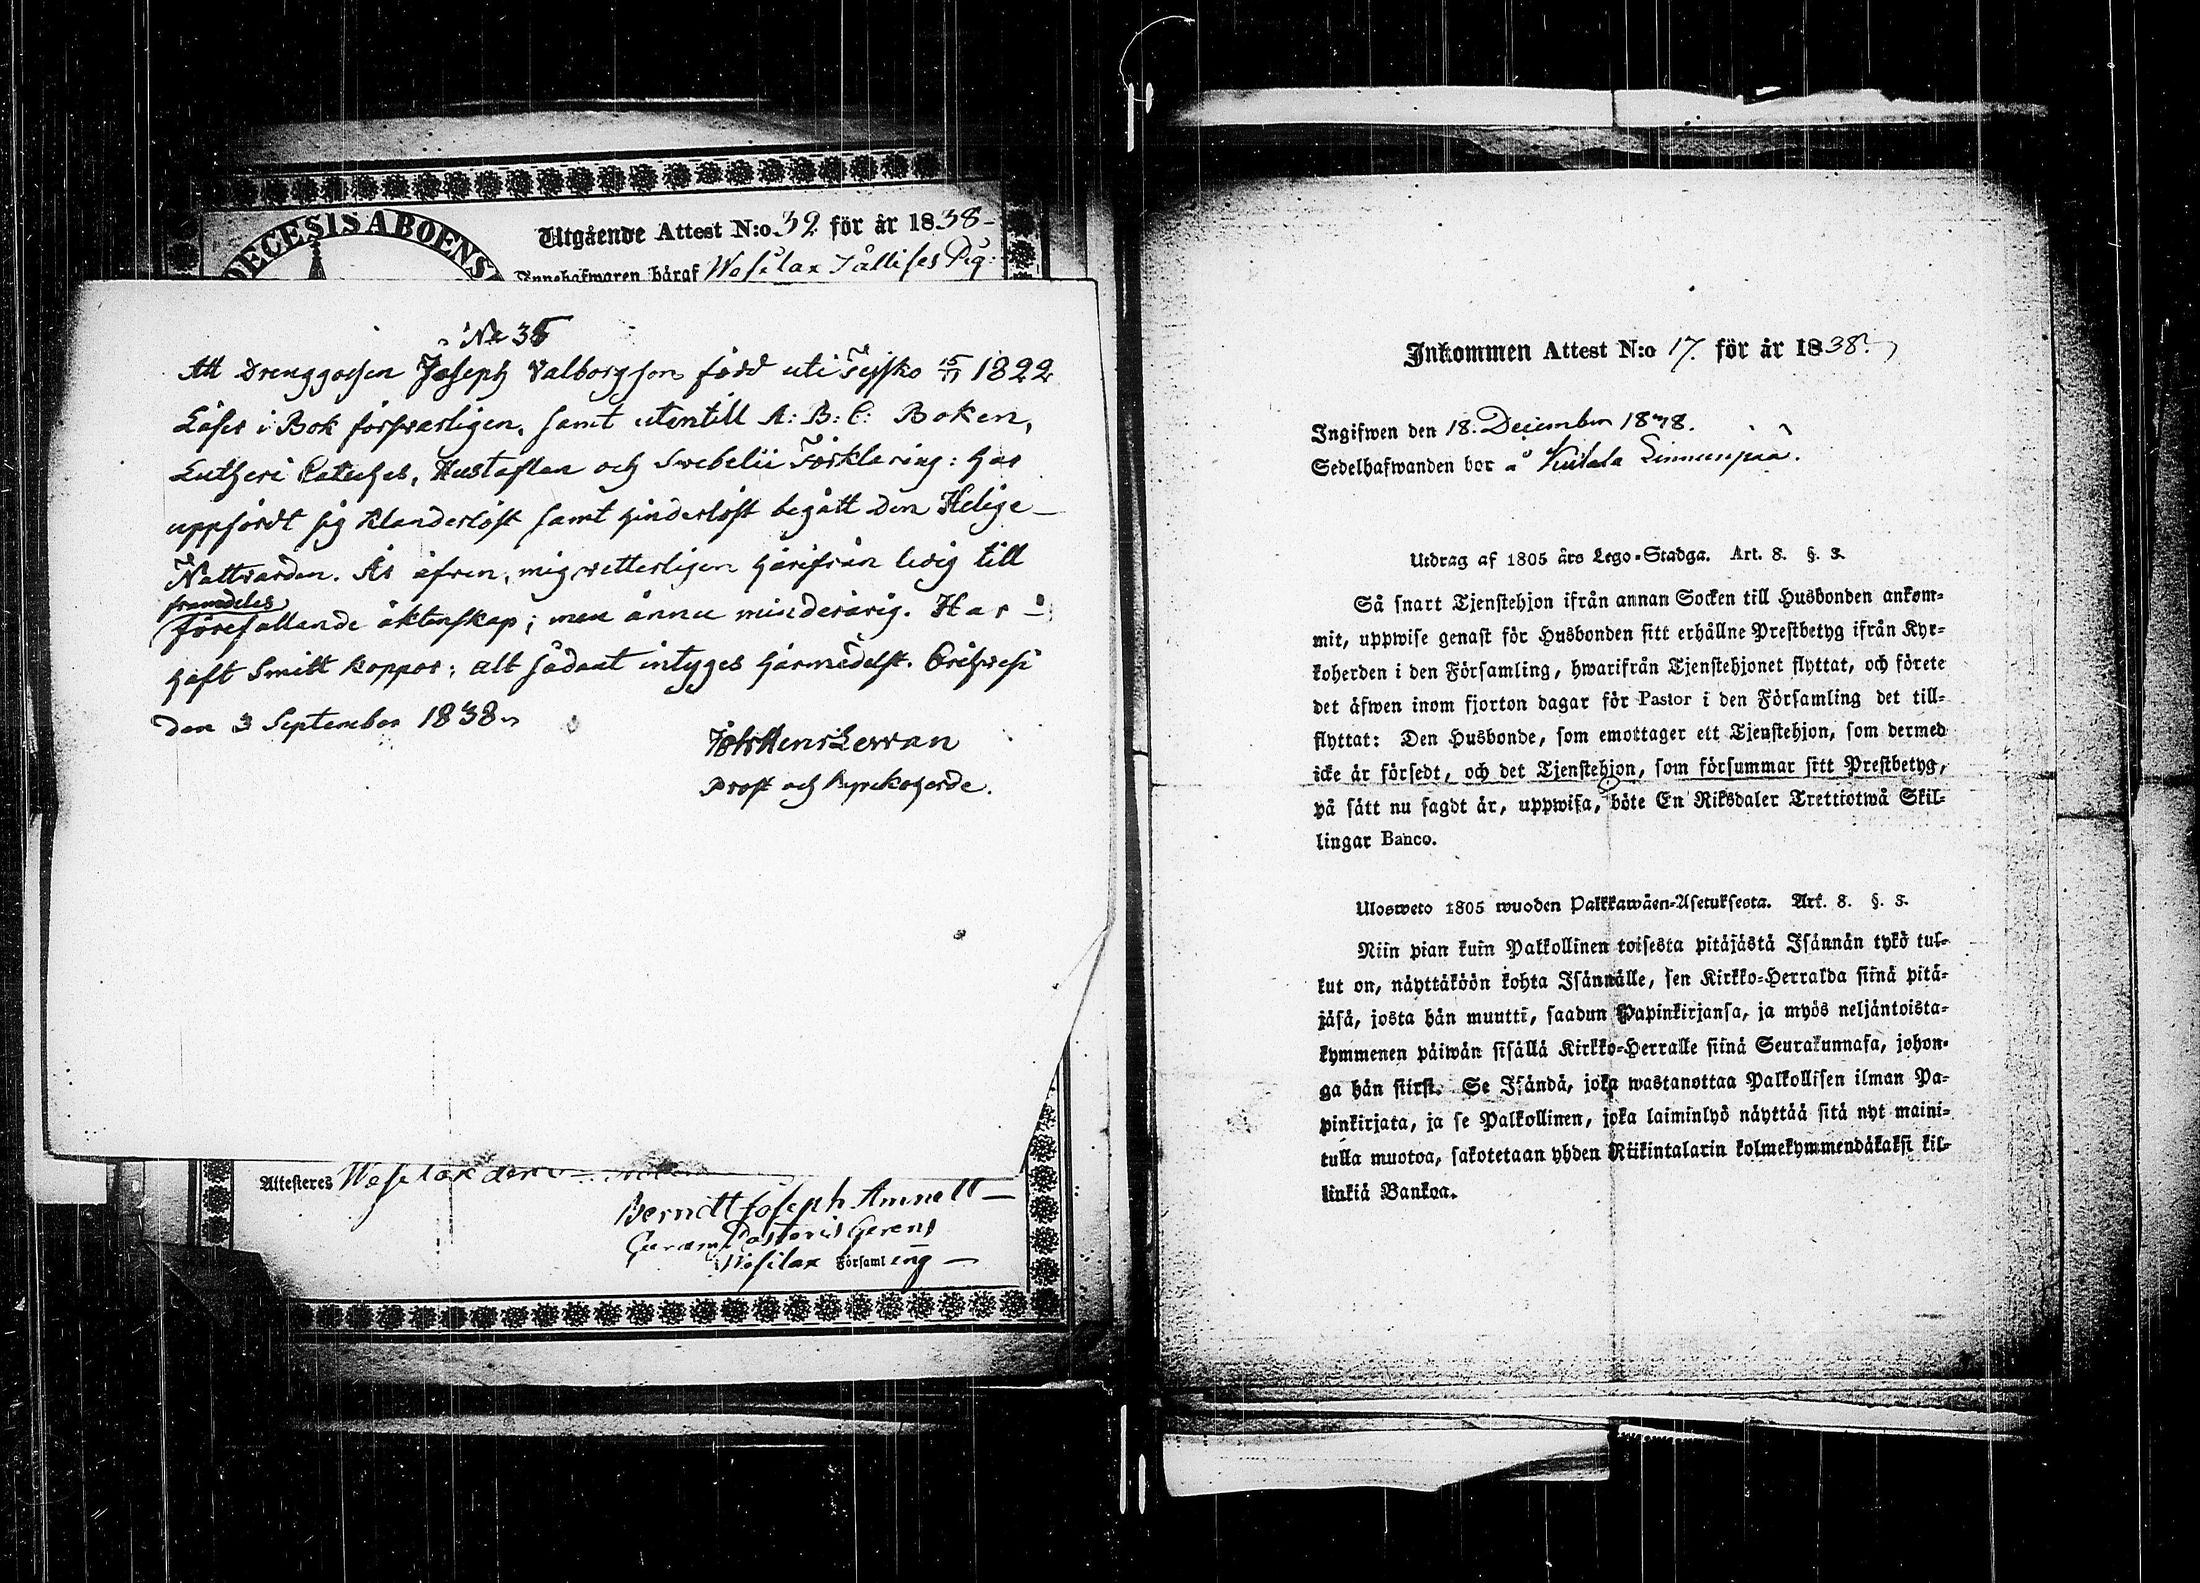 DIŒCESIS ABOENS
Utgående Attest N:o 32 för år 1838
Innehafwaren häraf Wesilax
No 35
Att Drenggossen Joseph Valborgson född uti Teisko 15/11 1822
Läser i Bok förswarligen, samt utantill A: B: C: Boken,
Lutheri Catechas, Hustaflan och Swebelii Förklaring: har
uppfördt sig klanderlöst samt hinderlöst begått den Helige
Nattvarden. Är äfven, mig vetterligen härifrån ledig till
framdeles
förefallande äktenskap; men ännu minderårig. Har
haft Smitt koppor; alt sådant intyges härmedelst. Orihvesi
den 3 September 1838
Prost och Kyrckoherde.
Attesteres Wesilax den
Berndt Joseph
Pastoris Gerens
i Wesilax Församling
Inkommen Attest N:o 17. för år 1838.
Ingifwen den 18. December 1838.
Sedelhafwanden bor å
Utdrag af 1805 års Lego-Stadga. Art. 8. §. 3.
Så snart Tjenstehjon ifrån annan Socken till Husbonden ankom-
mit, uppwise genast för Husbonden sitt erhållne Prestbetyg ifrån Kyr-
koherden i den Församling, hwarifrån Tjenstehjonet flyttat, och förete
det äfwen inom fjorton dagar för Pastor i den Församling det till-
flyttat: Den Husbonde, som emottager ett Tjenstehjon, som dermed
icke är försedt, och det Tjenstehjon, som försummar sitt Prestbetyg,
på sätt nu sagdt är, uppwisa, böte En Riksdaler Trettiotwå Skil-
lingar Banco.
Ulosweto 1805 wuoden Palkkawäen-Asetuksesta. Art. 8. §. 3.
Niin pian kuin Palkollinen toisesta pitäjästä Isännän tykö tul-
lut on, näyttäköön kohta Isännälle, sen Kirkko-Herralda siinä pitä-
jäsä, josta hän muutti, saadun Papinkirjansa, ja myös neljäntoista-
kymmenen päiwän sisällä Kirkko-Herralle siinä Seurakunnasa, johon-
ga hän siirsi. Se Isändä, joka wastanottaa Palkollisen ilman Pa-
pinkirjata, ja se Palkollinen, joka laiminlyö näyttää sitä nyt maini-
tulla muotoa, sakotetaan yhden Riikintalarin kolmekymmendäkaksi kil-
linkiä Bankoa.